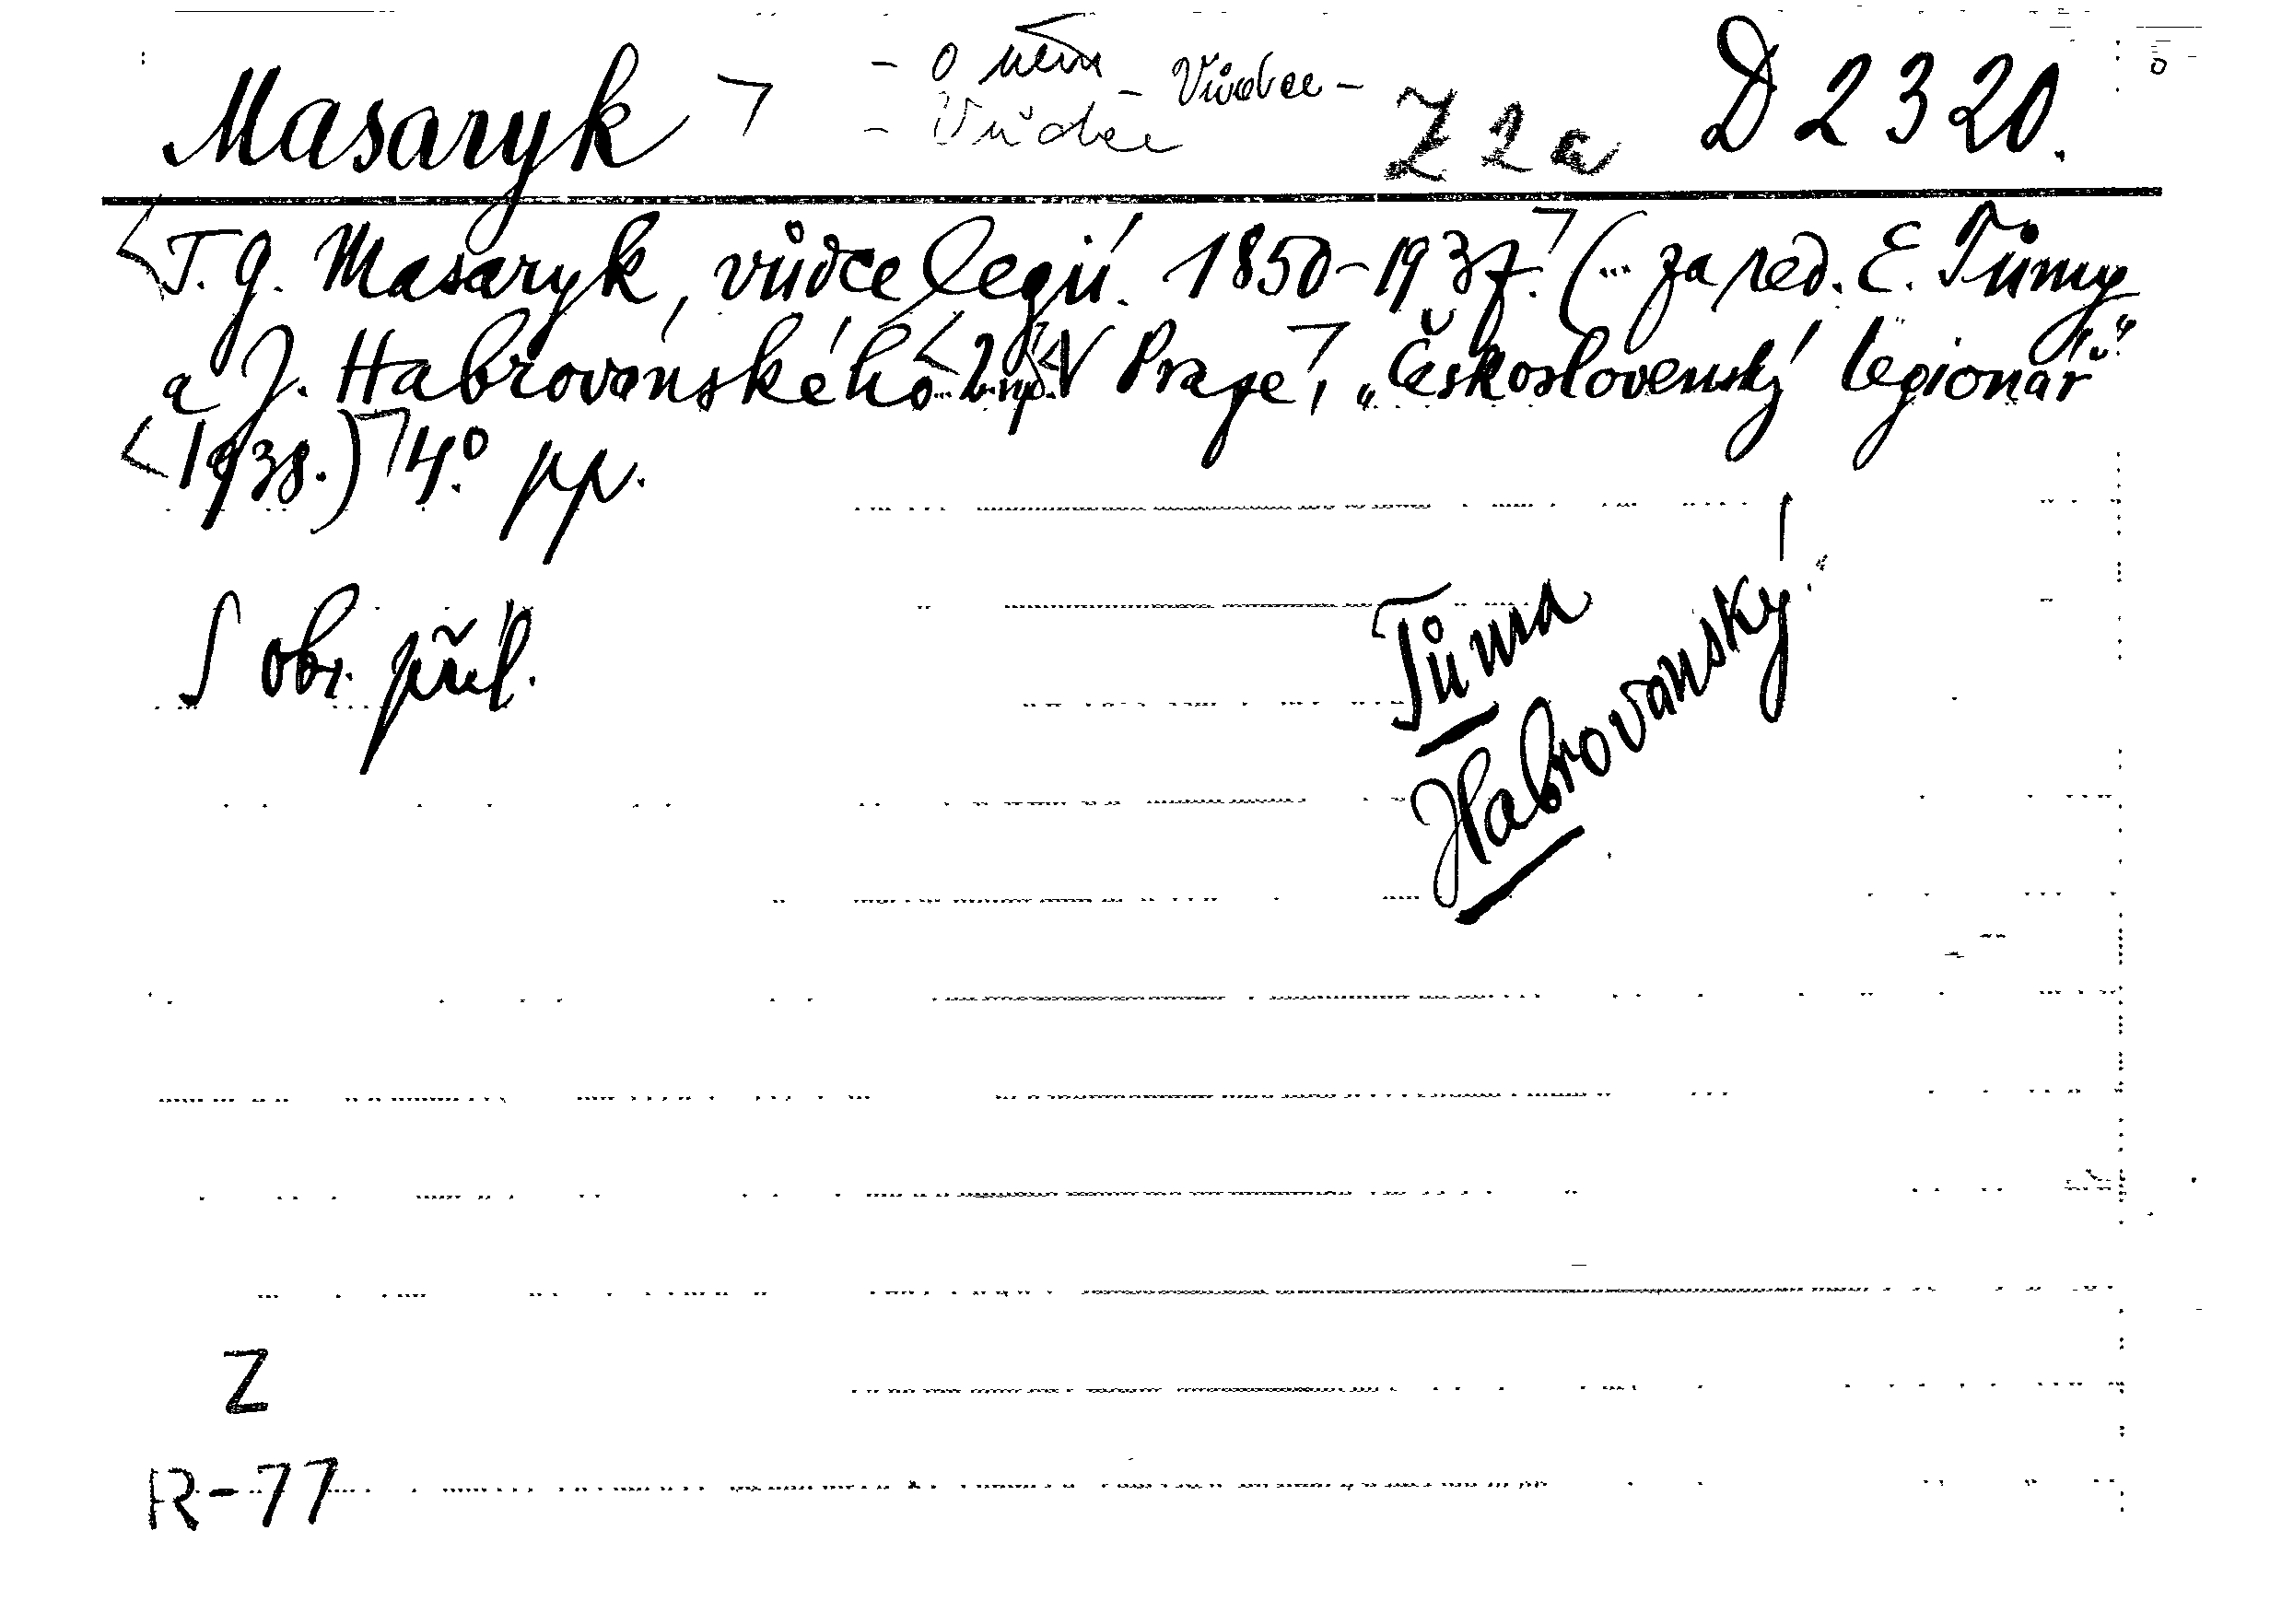 Masaryk ¬ - o něm - Vůdce - Z 2 a D 2320.
- Vůdce
T. G. Masaryk, vůdce legií. 1850-1937. (... za red. E. Tůmy
a J. Habrovanského. V Praze, „Československý legionář“
1938.) 4.° pp.
S obr. příl.
Tůma
Habrovanský
Z
R-77